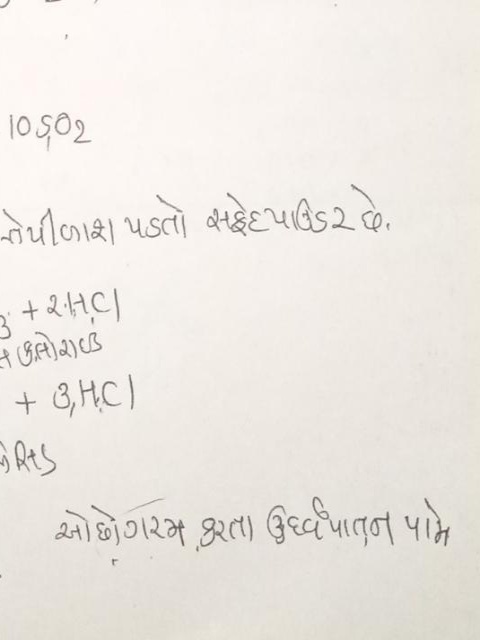 10SO2
પીળાશ પડતો સફેદ પાઉડર છે.
3 + 2HCl
ક્લોરાઈડ
+ 3HCl
એસિડ
ઓછો ગરમ કરતા ઉર્ધ્વપાતન પામે